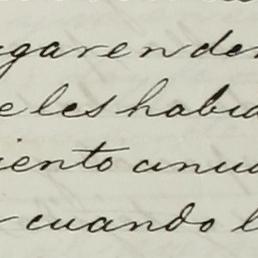 ugar en de
e les habia
iento anu
cuando l